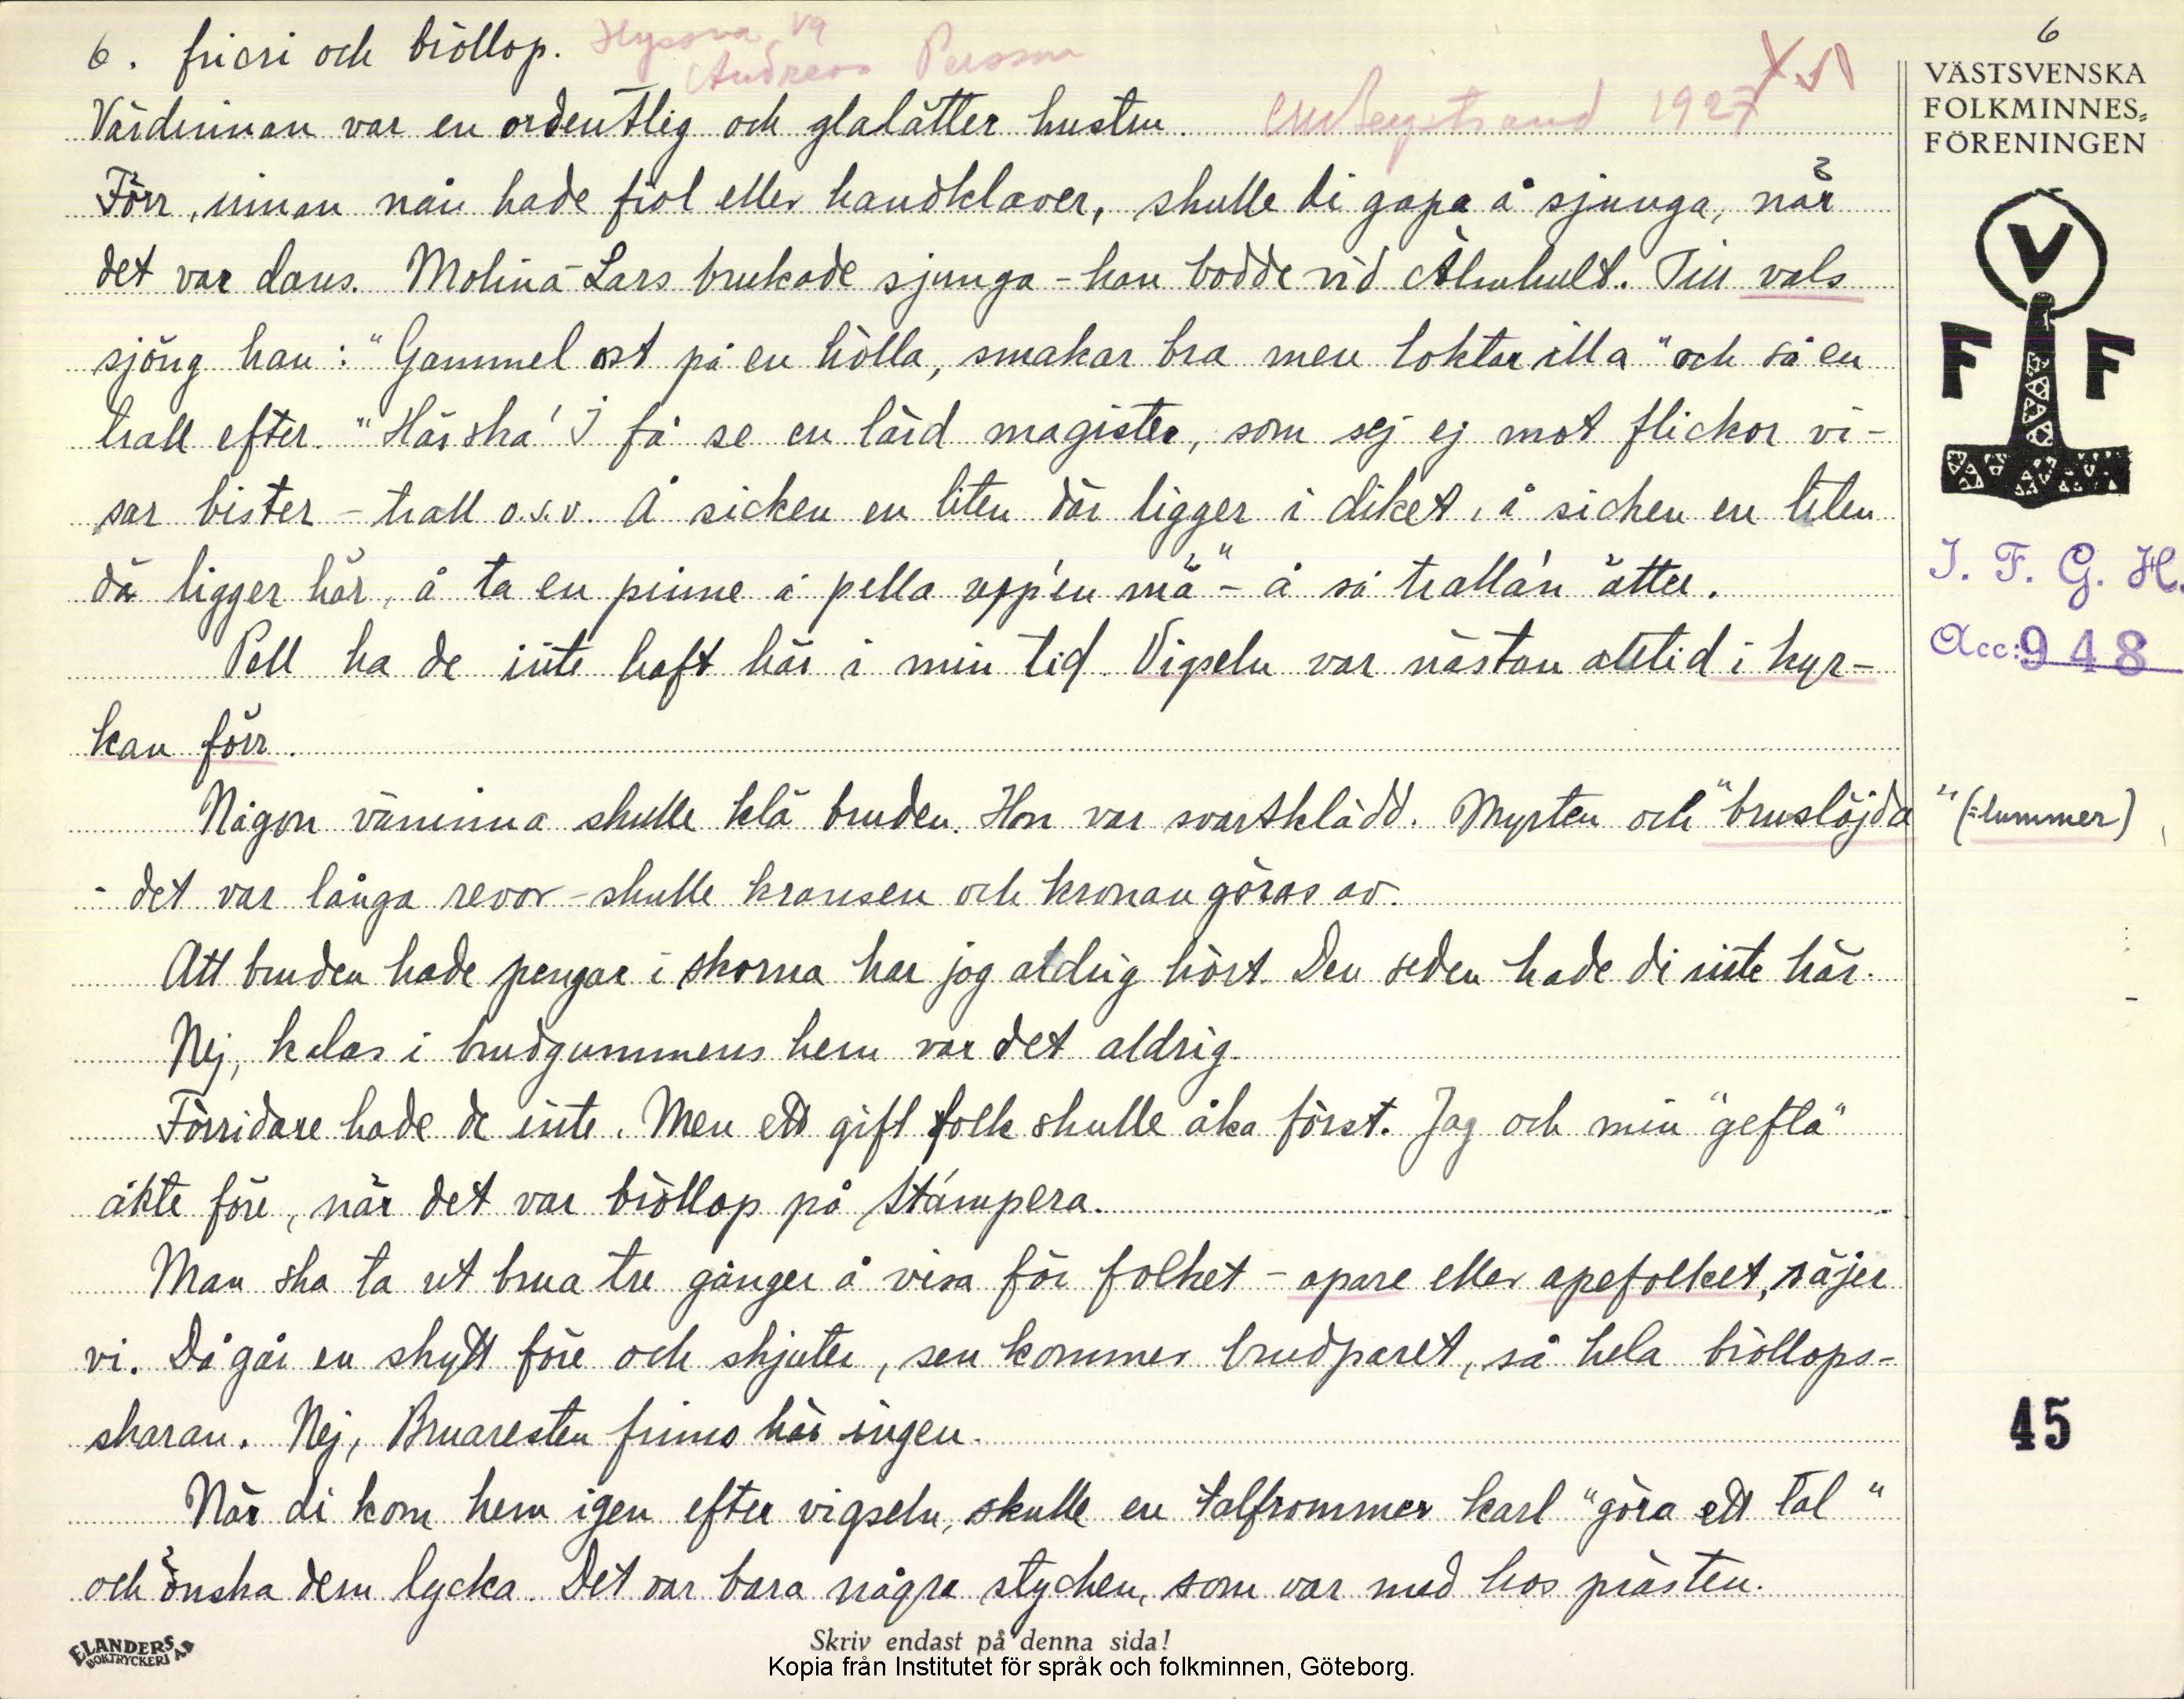 6
6. frieri och bröllop. Hyssna Vg
Andreas Persson
Värdinnan var en ordentlig och glalätter hustru. CM Bergstrand 1927
Förr, innan nån hade fiol eller handklaver, skulle di gapa å sjunga, när
det var dans. Molina-Lars brukade sjunga - han bodde vid Älmhult. Till vals
sjöng han: "Gammel ost på en hölla, smakar bra men loktar illa" och så en
trall efter. "Här ska' I få se en lärd magister, som sej ej mot flickor vi-
sar bister - trall o.s.v. Å sicken en liten där ligger i diket, å sicken en liten
dä ligger här, å ta en pinne å pella opp'en mä" - å så tralla'n ätter.
Pell ha de inte haft här i min tid. Vigseln var nästan alltid i kyr-
kan förr.
Någon väninna skulle klä bruden. Hon var svartklädd. Myrten och "bruslöjda" (= lummer)
- det var långa revor - skulle kransen och kronan göras av.
Att bruden hade pengar i skorna har jag aldrig hört. Den seden hade di inte här.
Nej, kalas i brudgummens hem var det aldrig.
Förridare hade de inte. Men ett gift folk skulle åka först. Jag och min "gefta"
åkte före, när det var bröllop på Stampera.
Man ska ta ut brua tre gånger å visa för folket - apare eller apefolket, säjer
vi. Då går en skytt före och skjuter, sen kommer brudparet, så hela bröllops-
skaran. Nej, Bruaresten finns här ingen.
När di kom hem igen efter vigseln, skulle en talfrommer karl "göra ett tal"
och önska dem lycka. Det var bara några stycken, som var med hos prästen.
VÄSTSVENSKA
FOLKMINNES=
FÖRENINGEN
V
F F
I. F. G. H.
Acc: 948
45
ELANDERS
BOKTRYCKERI AB
Skriv endast på denna sida!
Kopia från Institutet för språk och folkminnen, Göteborg.